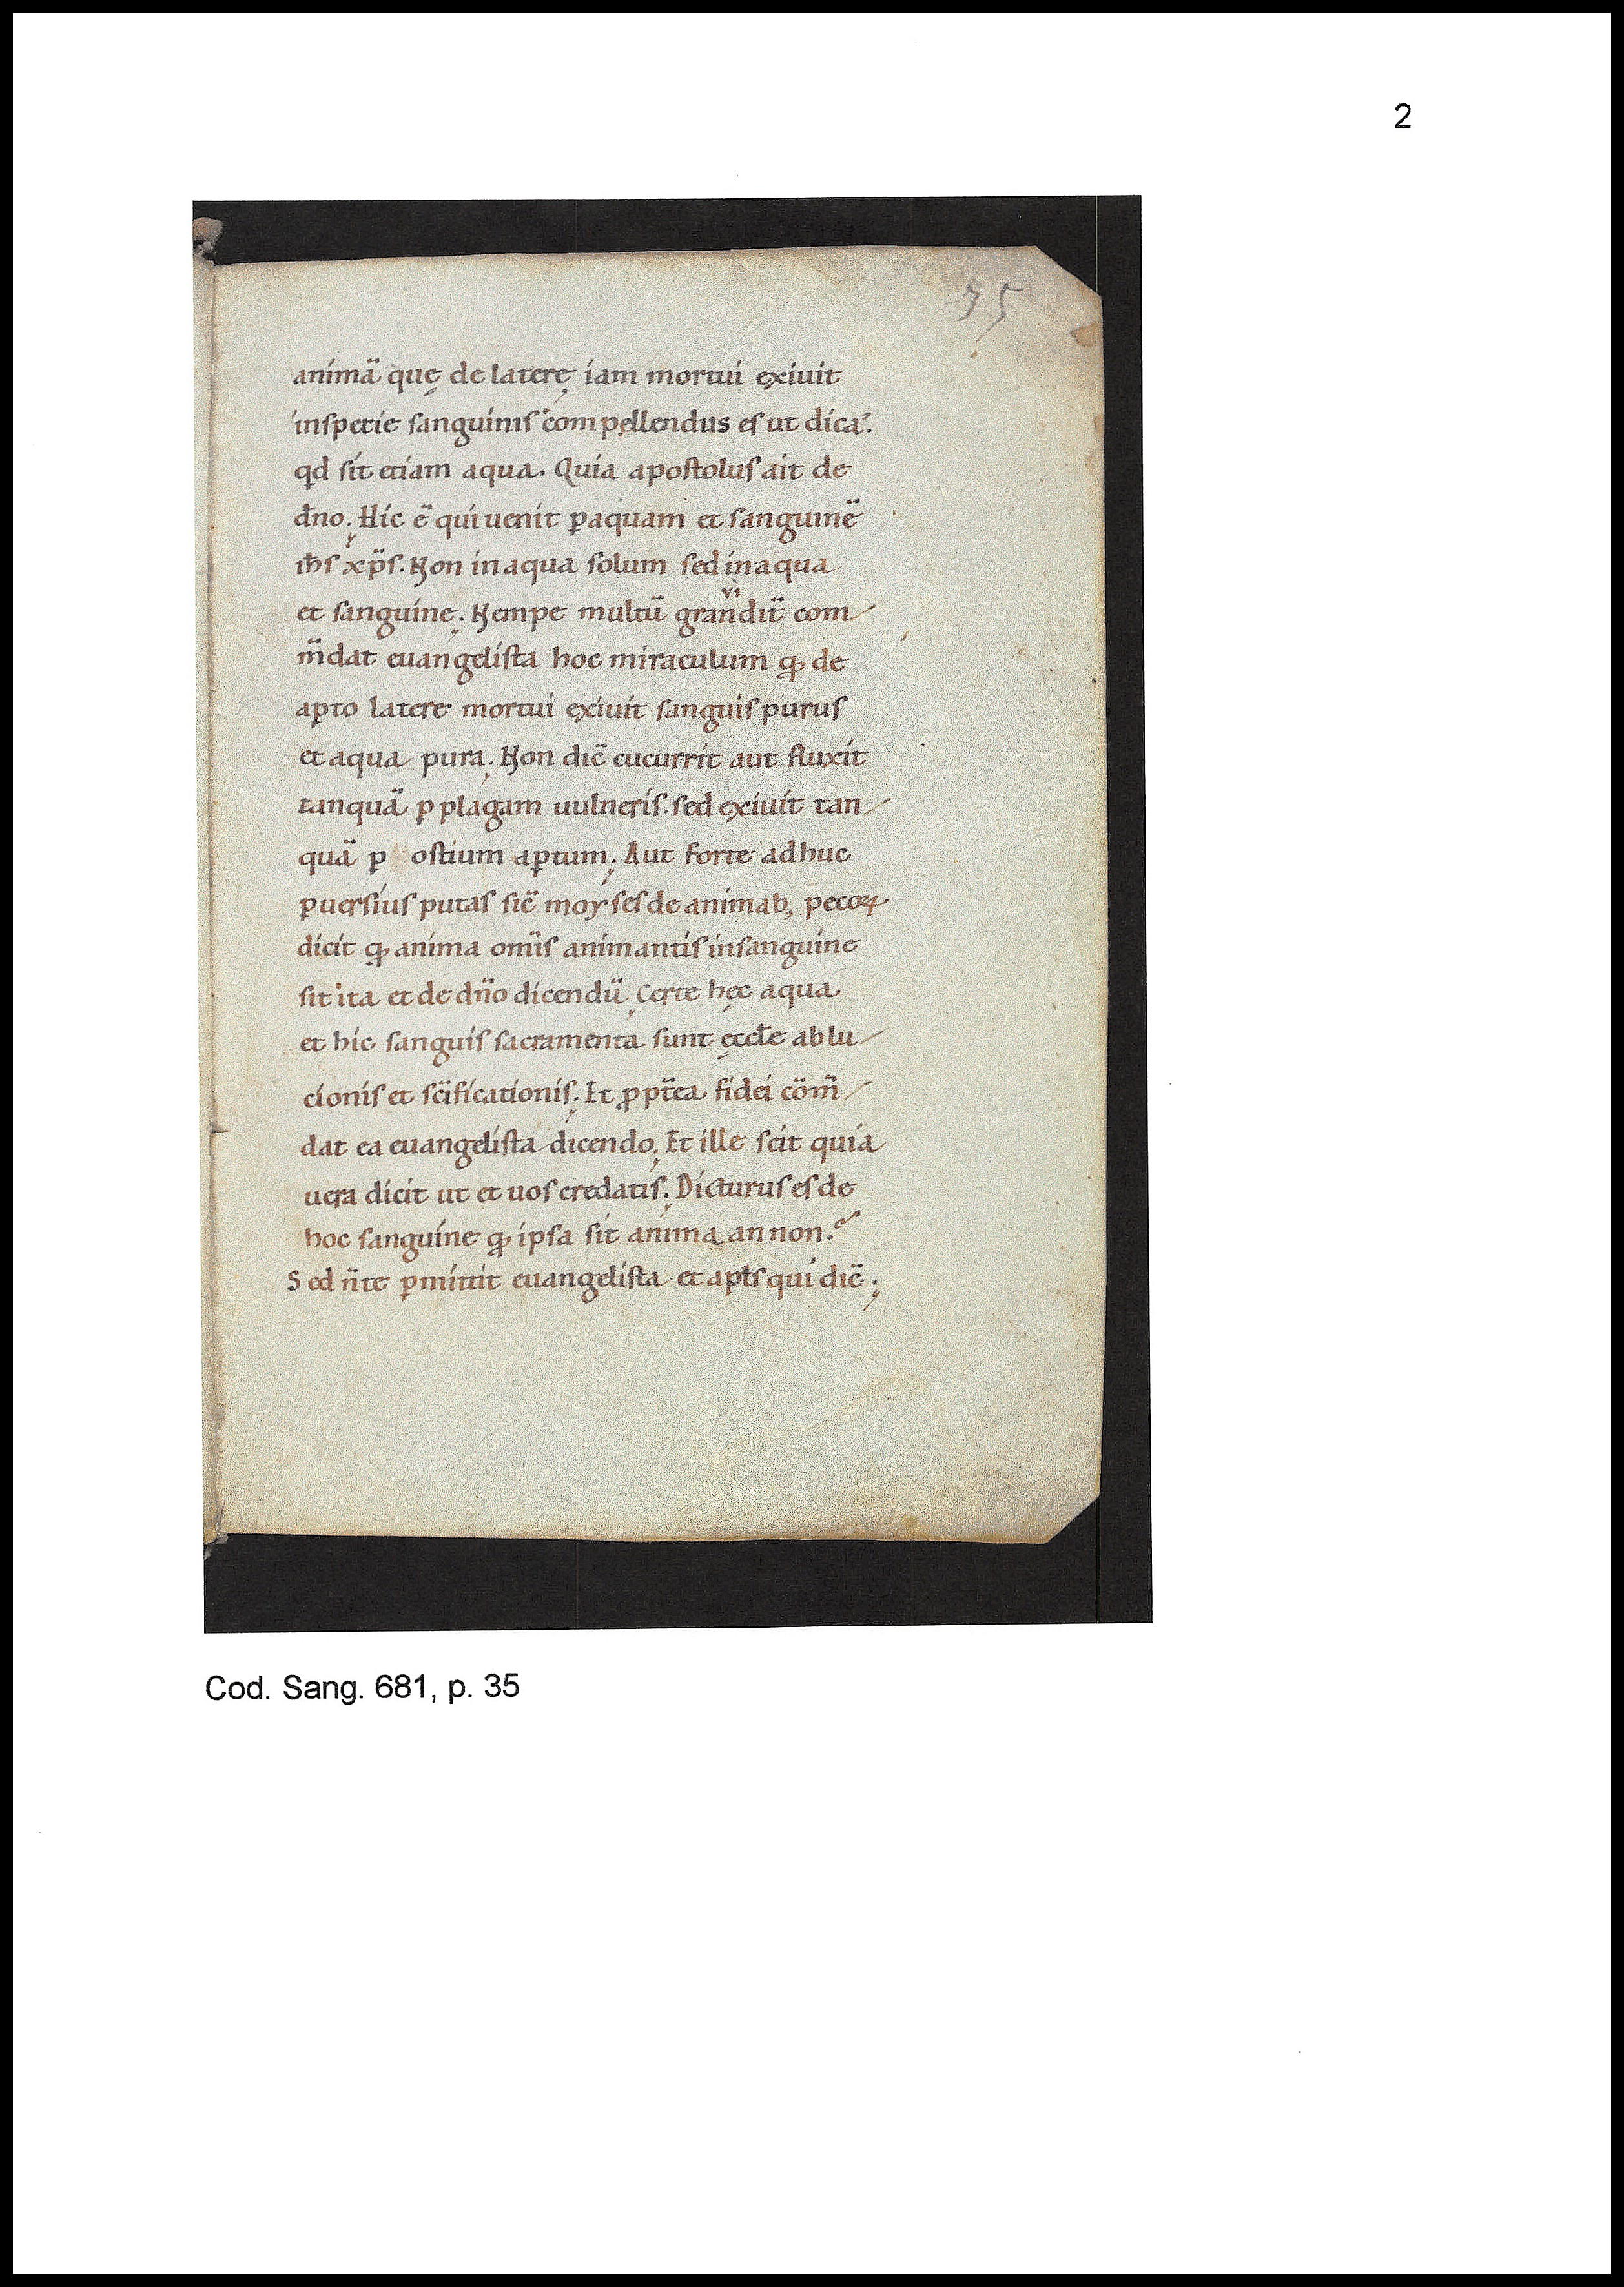 2
35
animā quę de latere iam mortui exiuit
inspecie sanguinis compellendus es ut dicas.
qd sit etiam aqua. Quia apostolus ait de
dn̄o. Hic ē qui uenit ꝑaquam et sanguinē
ih̄s xp̄s. Non in aqua solum sed inaqua
et sanguine. Nempe multū grandit̄ com
vi
m̄dat euangelista hoc miraculum qđ de
aꝑto latere mortui exiuit sanguis purus
et aqua pura. Non dic̄ cucurrit aut fluxit
tanquā ꝑ plagam uulneris. sed exiuit tan
quā ꝑ ostium aꝑtum. Aut forte adhuc
ꝑuersius putas sic̄ moyses de animab; pecoꝝ
dicit qđ anima om̄is animantis insanguine
sit ita et de dn̄o dicendū. Certe hęc aqua
et hic sanguis sacramenta sunt ęccłe ablu
cionis et sc̄ificationis. Et ꝓpt̄ea fidei cōm̄
dat ea euangelista dicendo. Et ille scit quia
uera dicit ut et uos credatis. Dicturus es de
hoc sanguine qđ ipsa sit anima an non.
Sed n̄ te ꝑmittit euangelista et apłs qui dic̄.
Cod. Sang. 681, p. 35